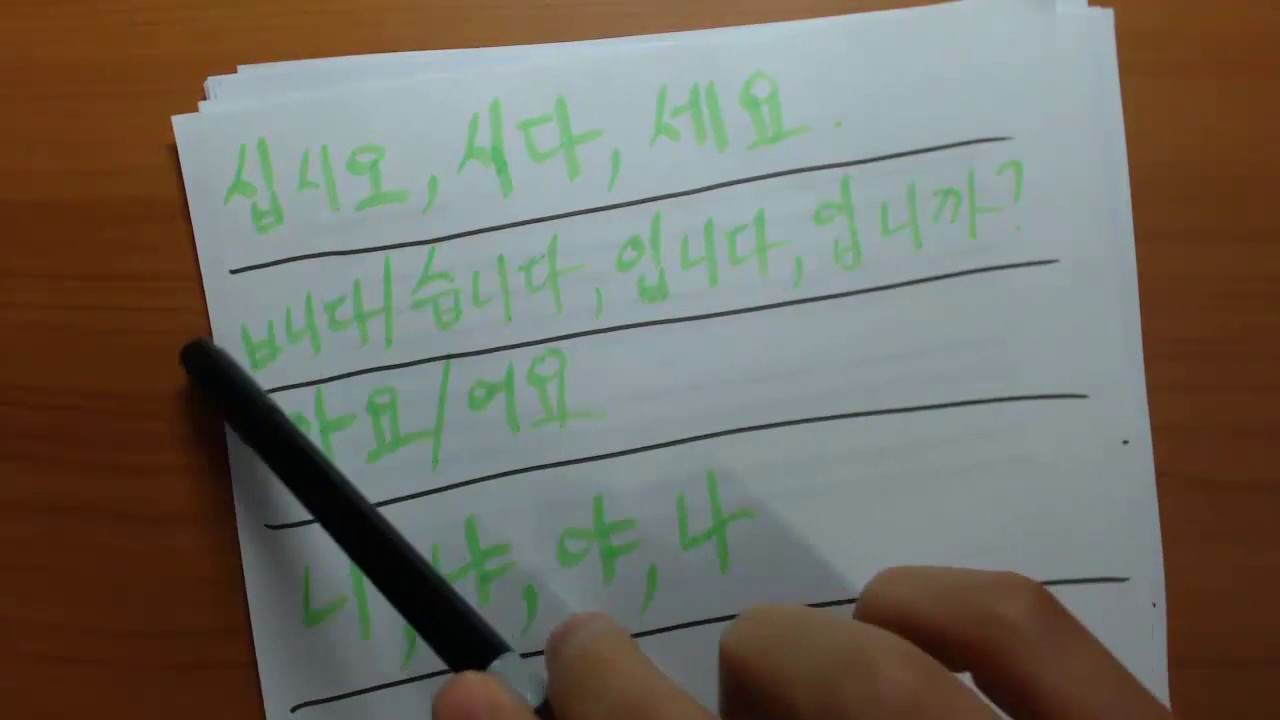 십시오, 시다, 세요.
ㅂ니다/습니다, 입니다, 입니까?
아요/어요
니, 냐, 야, 나